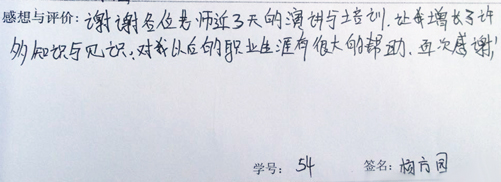 感想与评价:谢谢各位老师近3天的演讲与培训.让我增长了许
多知识与见识.对我以后的职业生涯有很大的帮助.再次感谢!
学号: 54 签名: 杨方园